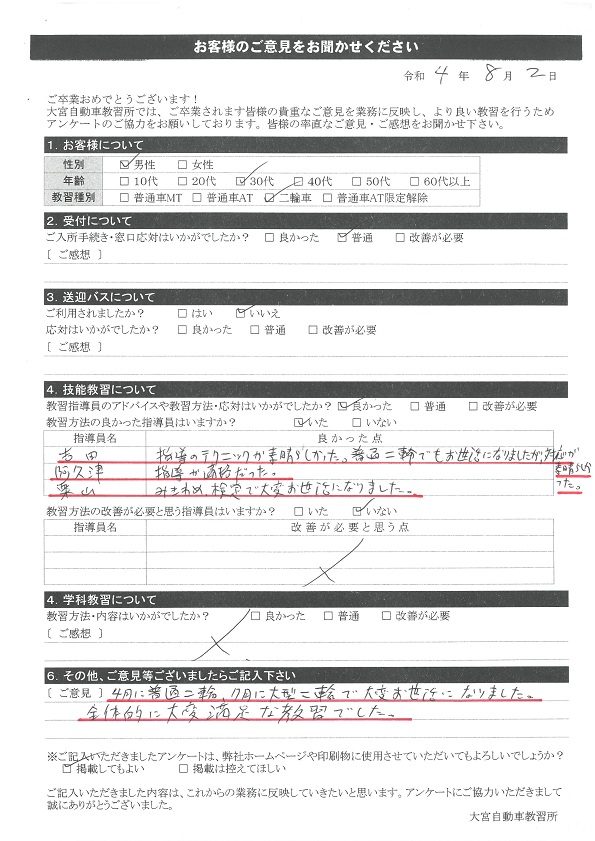 お客様のご意見をお聞かせください
令和 4 年 8 月 2 日
ご卒業おめでとうございます！
大宮自動車教習所では、ご卒業されます皆様の貴重なご意見を業務に反映し、より良い教習を行うため
アンケートのご協力をお願いしております。皆様の率直なご意見・ご感想をお聞かせ下さい。
1. お客様について
性別 ☑男性 □女性
年齢 □10代 □20代 ☑30代 □40代 □50代 □60代以上
教習種別 □普通車MT □普通車AT ☑二輪車 □普通車AT限定解除
2. 受付について
ご入所手続き・窓口応対はいかがでしたか？ □良かった ☑普通 □改善が必要
[ ご感想 ]
3. 送迎バスについて
ご利用されましたか？ □はい ☑いいえ
応対はいかがでしたか？ □良かった □普通 □改善が必要
[ ご感想 ]
4. 技能教習について
教習指導員のアドバイスや教習方法・応対はいかがでしたか？ ☑良かった □普通 □改善が必要
教習方法の良かった指導員はいますか？ ☑いた □いない
指導員名 良かった点
吉田 指導のテクニックが素晴らしかった。普通二輪でもお世話になりましたが、対応が
素晴らしかった。
阿久津 指導が適格だった。
栗山 みきわめ、検定で大変お世話になりました。
教習方法の改善が必要と思う指導員はいますか？ □いた ☑いない
指導員名 改善が必要と思う点
4. 学科教習について
教習方法・内容はいかがでしたか？ □良かった □普通 □改善が必要
[ ご感想 ]
6. その他、ご意見等ございましたらご記入下さい
[ ご意見 ] 4月に普通二輪、7月に大型二輪で大変お世話になりました。
全体的に大変満足な教習でした。
※ご記入いただきましたアンケートは、弊社ホームページや印刷物に使用させていただいてもよろしいでしょうか？
☑掲載してもよい □掲載は控えてほしい
ご記入いただきました内容は、これからの業務に反映していきたいと思います。アンケートにご協力いただきまして
誠にありがとうございました。
大宮自動車教習所